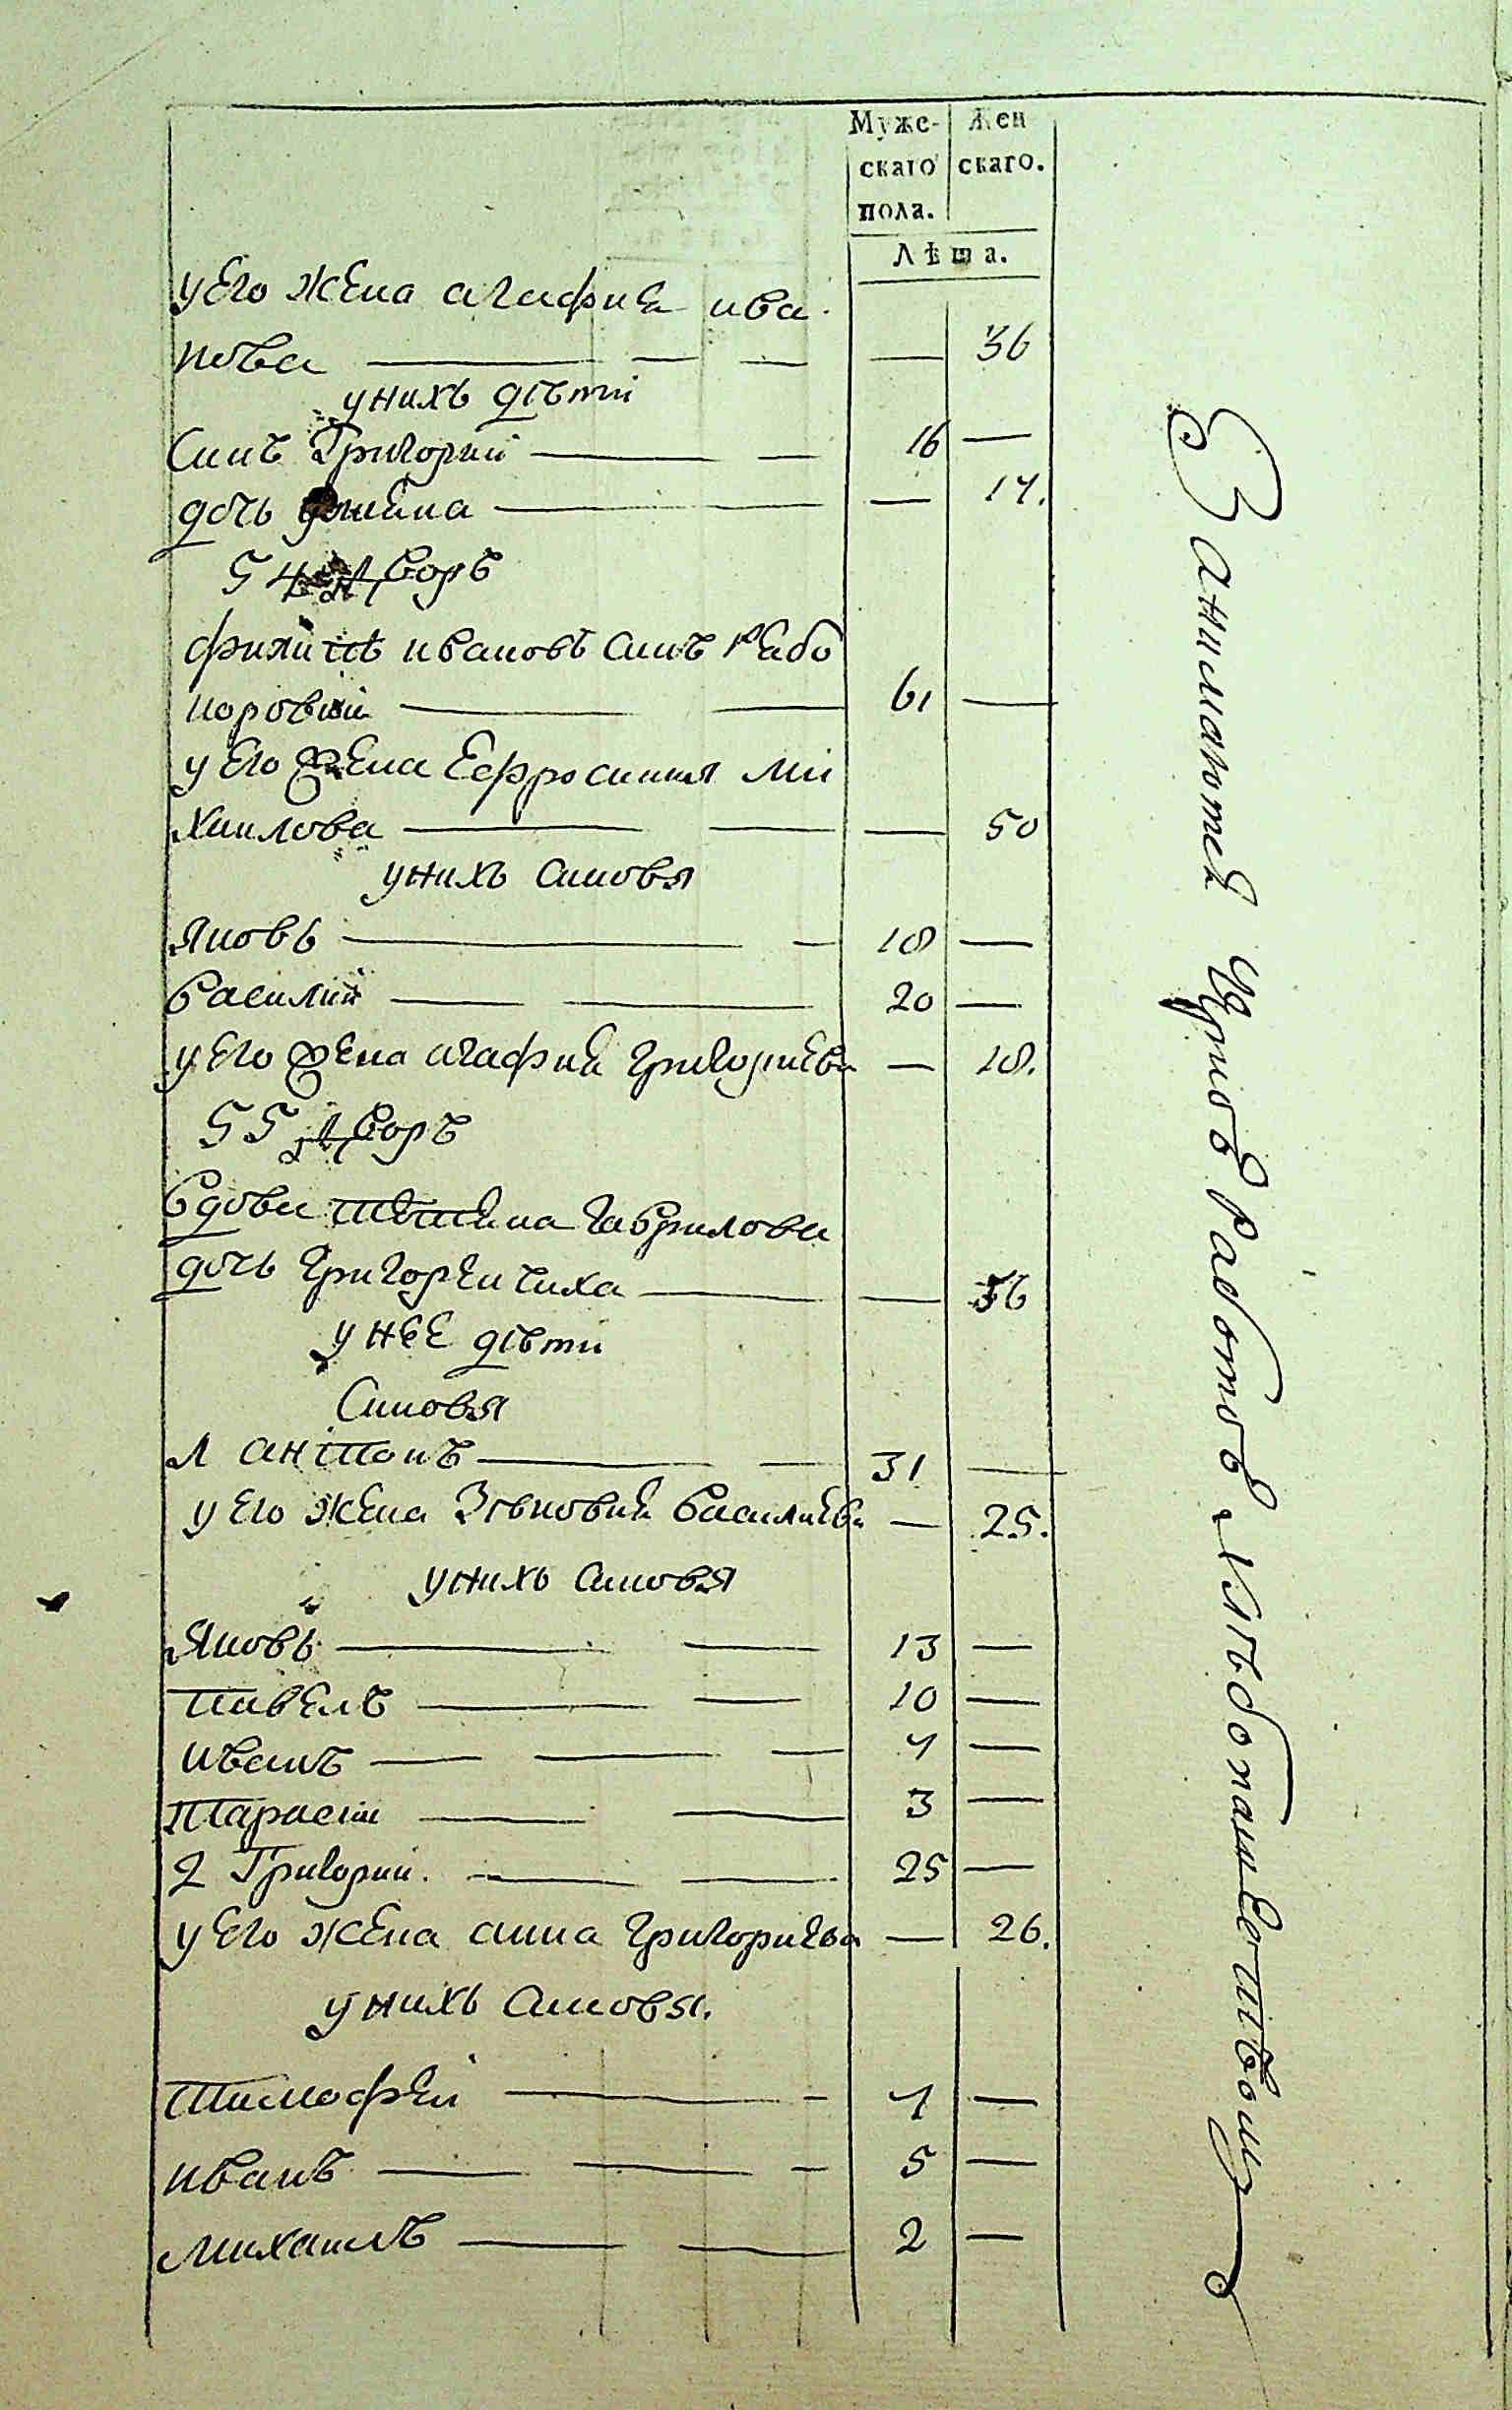 Муже-
скаго
пола.
Жен
скаго.
Лѣта.
у его жена агафиѣ ива
нова — — — — 36
у нихъ дѣти
Синъ Григорий — — 16 —
дочь — — — 14.
54 Дворъ
филипъ ивановъ синъ
— — 61 —
у его жена Ефросиния ми
хаилова — — — 50
у нихъ синовя
Яковъ — — 18 —
василий — — 20 —
у его жена агафиѣ григориева — 18.
55 Дворъ
вдова гаврилова
дочь григоревичиха — — 56
у нее дѣти
Синовя
1 антонъ — — 31 —
у его жена Зѣновиѣ василиева — 25.
у нихъ синовя
Яковъ — — 13 —
павелъ — — 10 —
иванъ — — — 4 —
тарасии — — 3 —
2 Григории. — — 25 —
у его жена анна григориева — 26.
у нихъ синовя.
тимофей — — 4 —
иванъ — — — 5 —
михаилъ — — 2 —
Занимаютсѣ работов хлѣбопашественною